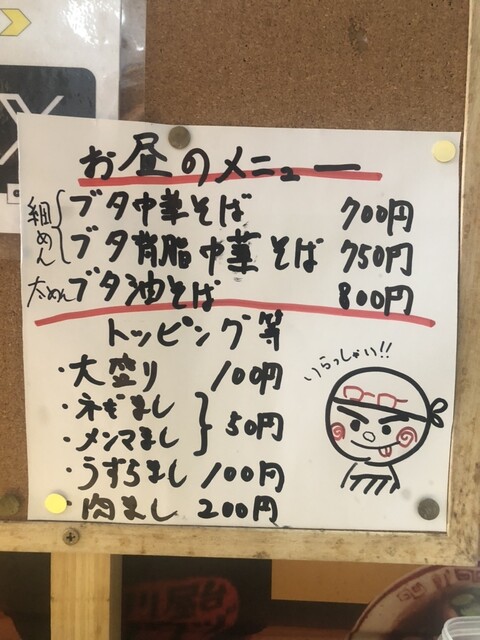 お昼のメニュー
細めん
ブタ中華そば 700円
ブタ背脂中華そば 750円
太めん ブタ油そば 800円
トッピング等
・大盛り 100円
・ネギまし
・メンマまし 50円
・うずらまし 100円
・肉まし 200円
いらっしゃい!!
X